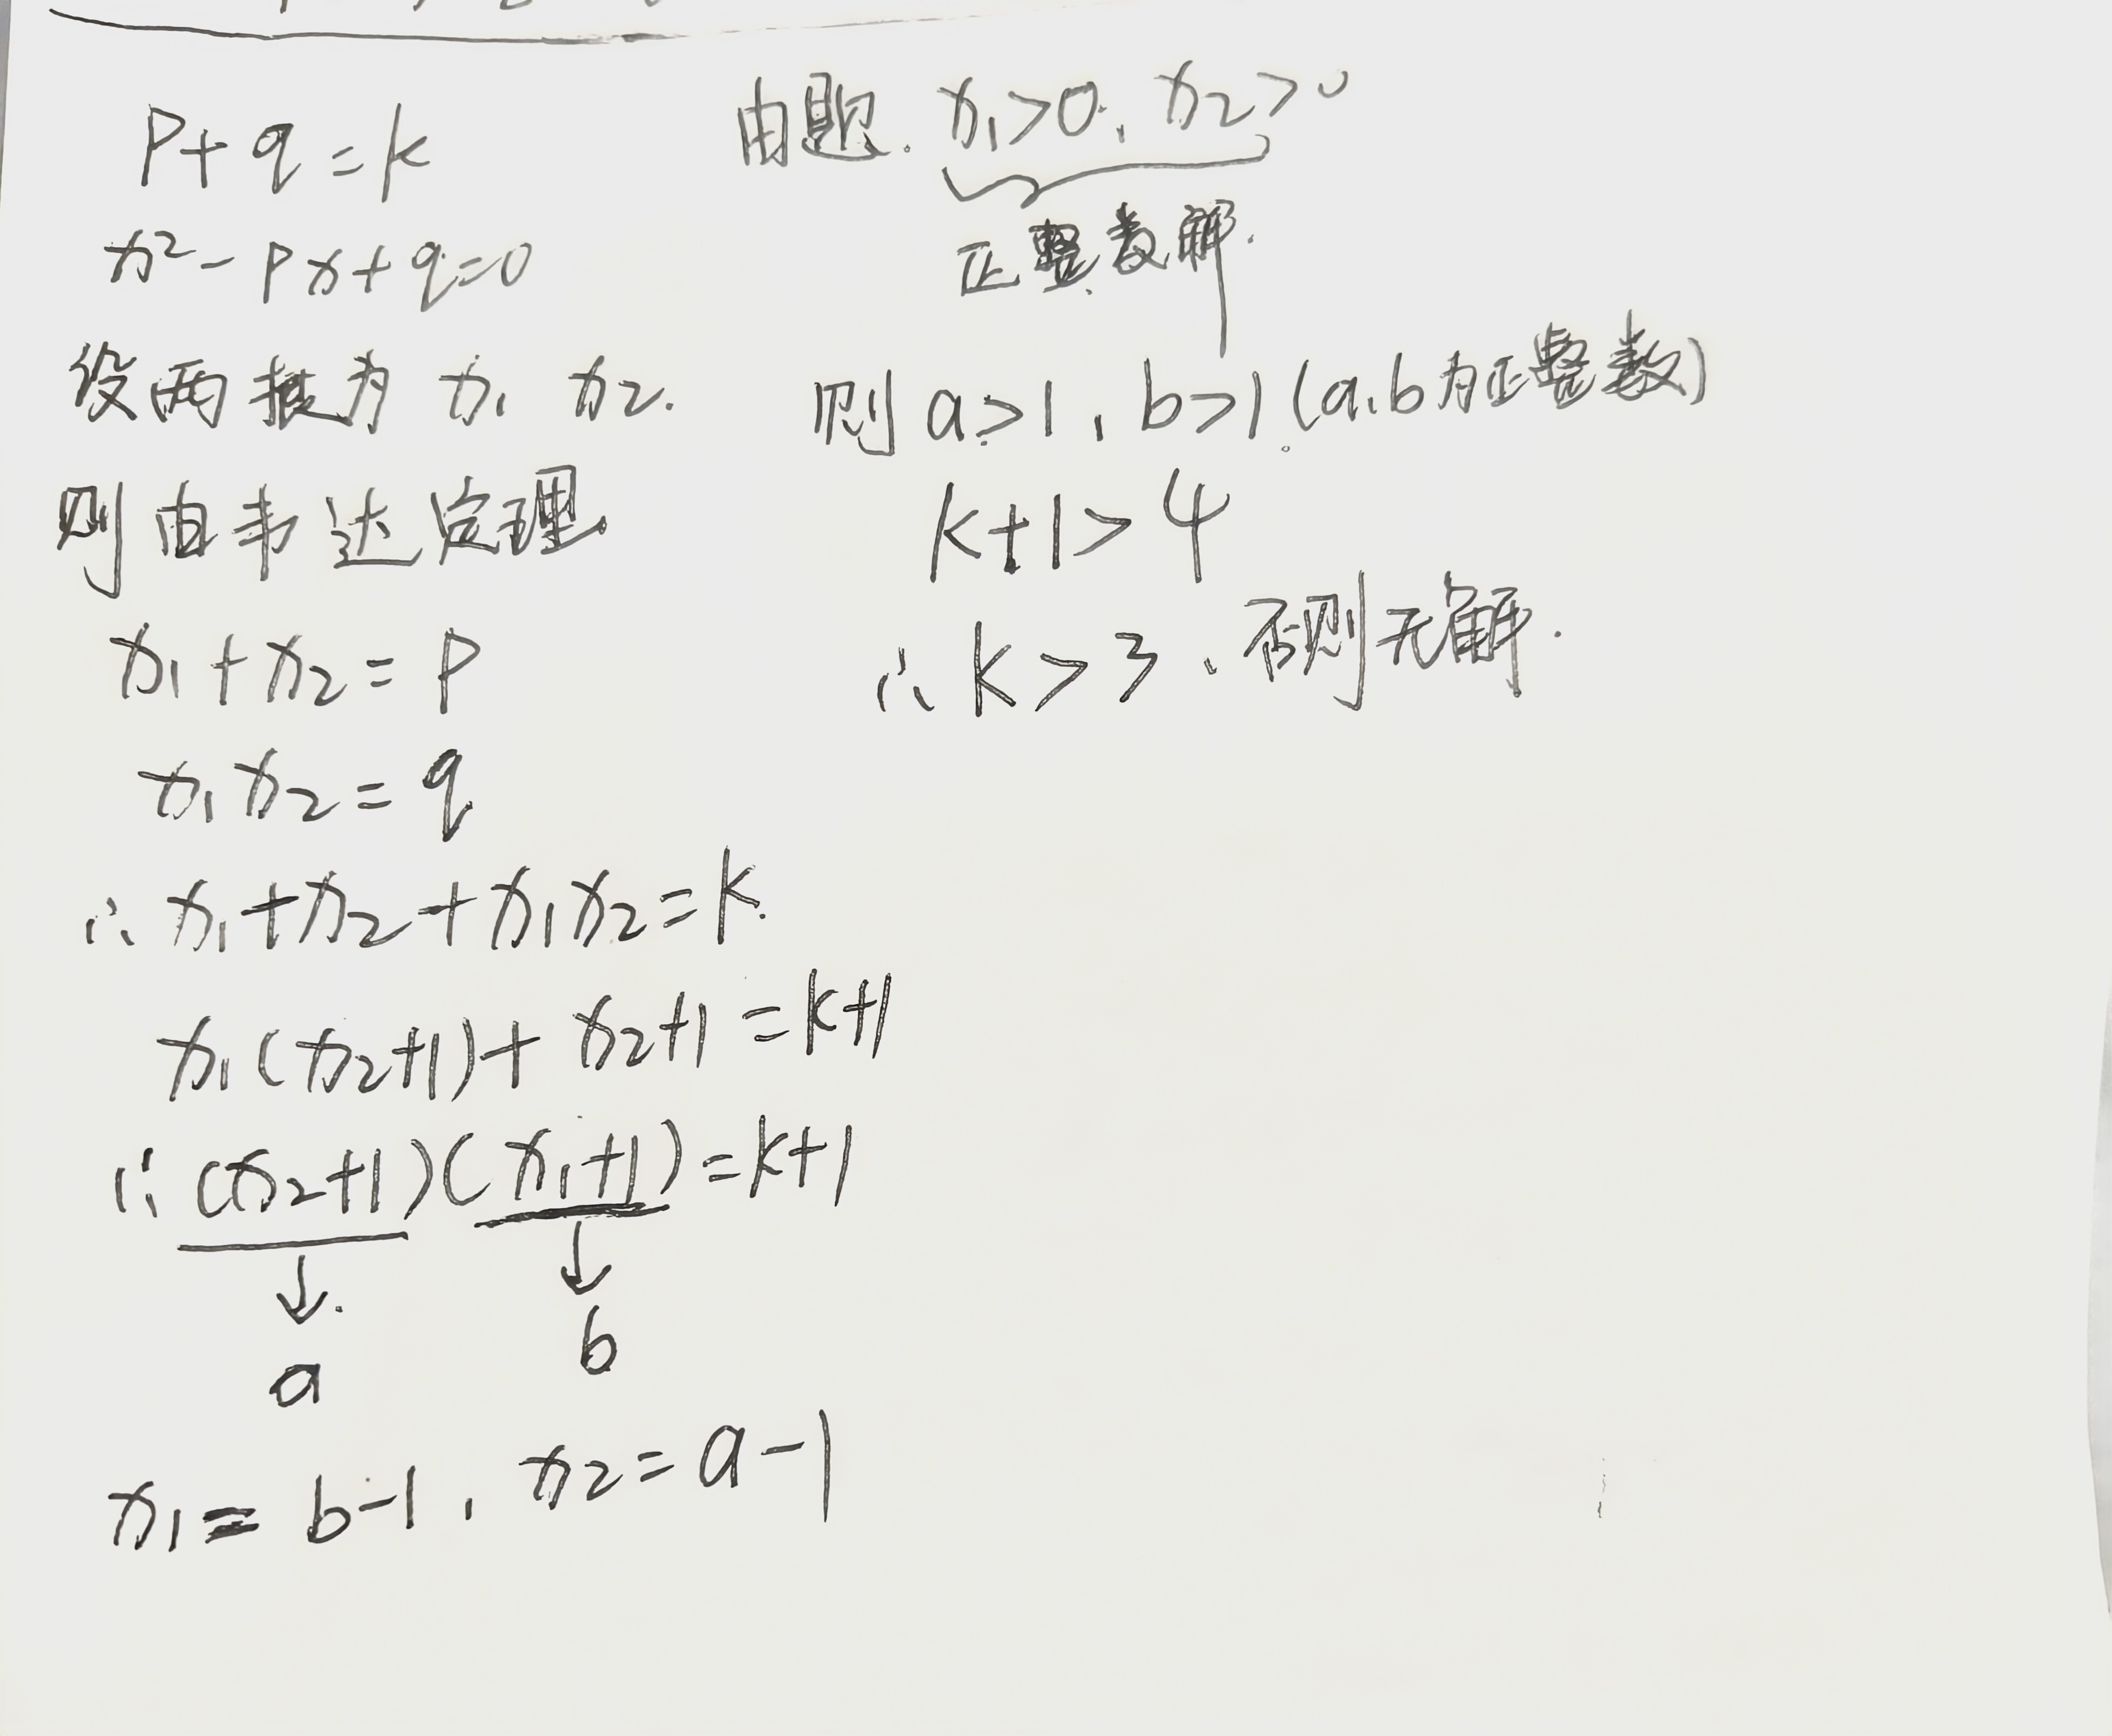 p+q=k
x²-px+q=0
设两根为 x₁ x₂.
则由韦达定理
x₁+x₂=p
x₁x₂=q
∴ x₁+x₂+x₁x₂=k.
x₁(x₂+1)+x₂+1=k+1
∴ (x₂+1)(x₁+1)=k+1
↓ ↓
a b
x₁=b-1, x₂=a-1
由题. x₁>0, x₂>0
正整数解.
则 a>1, b>1.(a,b为正整数)
k+1>4
∴ k>3, 否则无解.